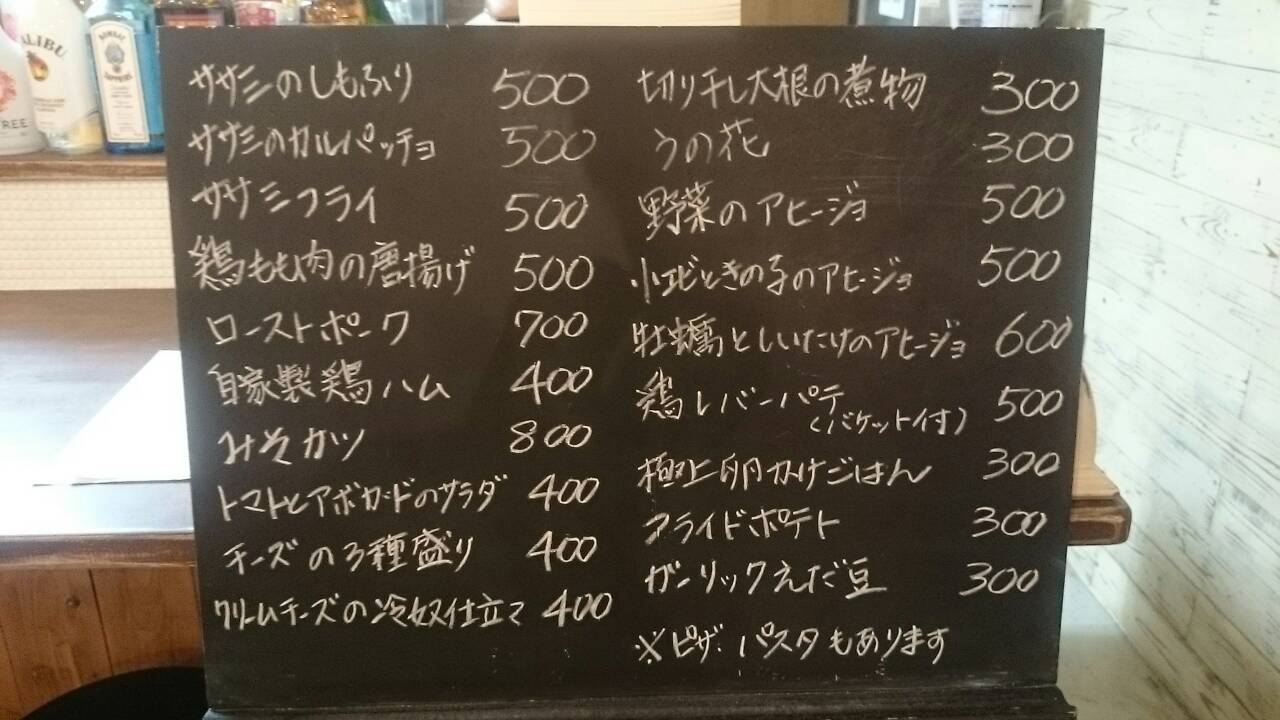 ササミのしもふり 500
ササミのカルパッチョ 500
ササミフライ 500
鶏もも肉の唐揚げ 500
ローストポーク 700
自家製鶏ハム 400
みそカツ 800
トマトとアボカードのサラダ 400
チーズの3種盛り 400
クリームチーズの冷奴仕立て 400
切り干し大根の煮物 300
うの花 300
野菜のアヒージョ 500
小エビときの子のアヒージョ 500
牡蠣としいたけのアヒージョ 600
鶏レバーパテ 500
(バケット付)
極上卵かけごはん 300
フライドポテト 300
ガーリックえだ豆 300
※ピザ・パスタもあります
MALIBU
BOMBAY
SAPPHIRE